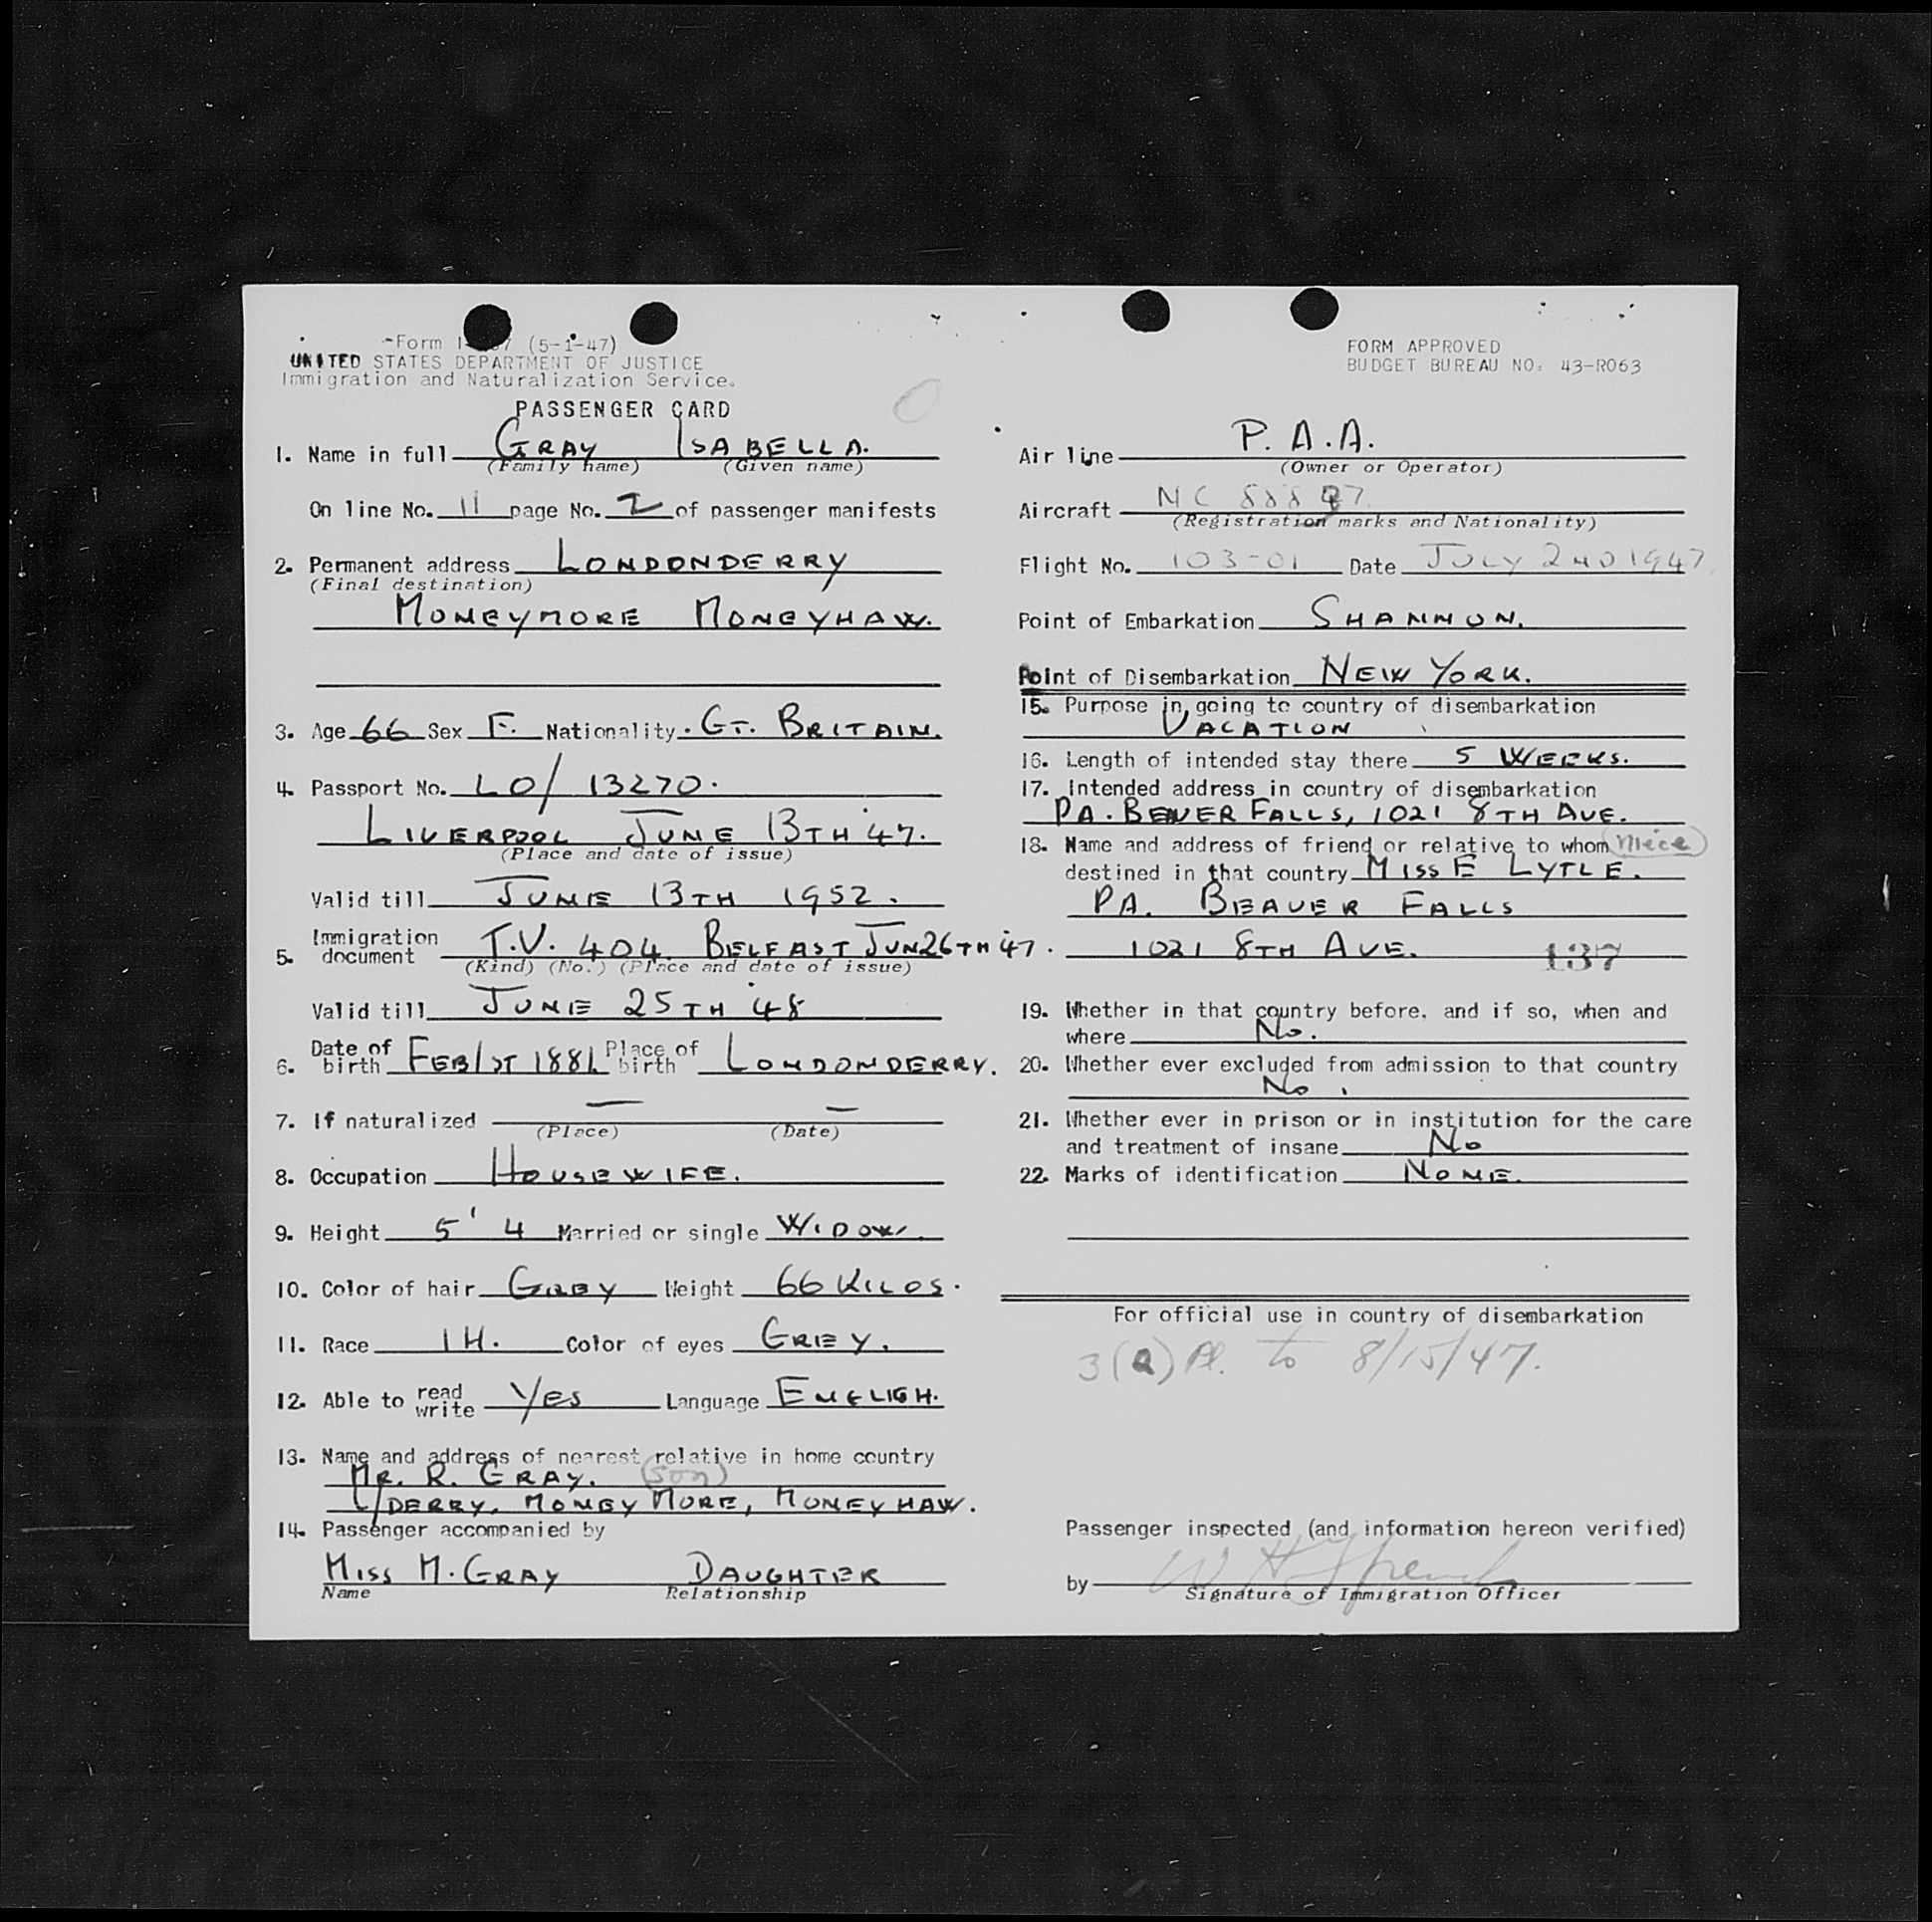 Form I- 7 (5-1-47)
UNITED STATES DEPARTMENT OF JUSTICE
Immigration and Naturalization Service.
PASSENGER CARD
1. Name in full GRAY ISABELLA.
(Family name) (Given name)
On line No. 11 page No. 2 of passenger manifests
2. Permanent address LONDONDERRY
(Final destination)
MONEYMORE MONEYHAW.
3. Age 66 Sex F. Nationality. GT. BRITAIN.
4. Passport No. LO/ 13270.
LIVERPOOL JUNE 13TH '47.
(Place and date of issue)
Valid till JUNE 13TH 1952.
5. Immigration document T.V. 404 BELFAST JUN 26TH '47.
(Kind) (No.) (Place and date of issue)
Valid till JUNE 25TH '48
6. Date of birth FEB 1ST 1881. Place of birth LONDONDERRY.
7. If naturalized — —
(Place) (Date)
8. Occupation HOUSEWIFE.
9. Height 5' 4 Married or single WIDOW.
10. Color of hair GREY Weight 66 KILOS.
11. Race IH. Color of eyes GREY.
12. Able to read write YES Language ENGLISH.
13. Name and address of nearest relative in home country
MR. R. GRAY. (son)
L/DERRY. MONEYMORE, MONEYHAW.
14. Passenger accompanied by
MISS M. GRAY DAUGHTER
Name Relationship
FORM APPROVED
BUDGET BUREAU NO. 43-R063
Air line P.A.A.
(Owner or Operator)
Aircraft NC 88847
(Registration marks and Nationality)
Flight No. 103-01 Date JULY 2ND 1947
Point of Embarkation SHANNON.
Point of Disembarkation NEW YORK.
15. Purpose in going to country of disembarkation
VACATION
16. Length of intended stay there 5 WEEKS.
17. Intended address in country of disembarkation
PA. BEAVER FALLS, 1021 8TH AVE.
18. Name and address of friend or relative to whom (niece)
destined in that country MISS E LYTLE.
PA. BEAVER FALLS
1021 8TH AVE. 137
19. Whether in that country before, and if so, when and
where NO.
20. Whether ever excluded from admission to that country
NO.
21. Whether ever in prison or in institution for the care
and treatment of insane NO
22. Marks of identification NONE.
For official use in country of disembarkation
3(2) to 8/15/47.
Passenger inspected (and information hereon verified)
by W H
Signature of Immigration Officer